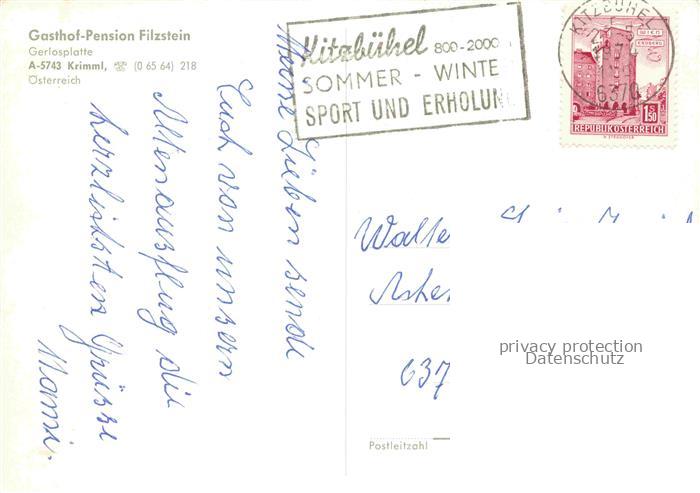 Gasthof-Pension Filzstein
Gerlosplatte
A-5743 Krimml, ☎ (0 65 64) 218
Österreich
Kitzbühel 800-2000
SOMMER - WINTE
SPORT UND ERHOLUN
KITZBÜHEL
6370
WIEN
ERDBERG
1.50
REPUBLIK ÖSTERREICH
Meine Lieben sende
Euch von unsern
Altenausflug die
herzlichsten Grüsse
Mami.
Walte
637
privacy protection
Datenschutz
Postleitzahl